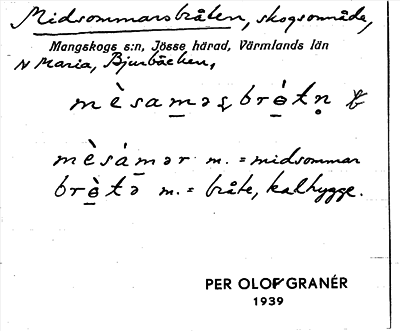 Midsommarsbråten, skogsområde,
Mangskogs s:n, Jösse härad, Värmlands län
N Maria, Bjurbäcken,
mèsaməʂbrǿtn̥
mèsámər m. = midsommar
brø̀tə m. = bråte, kalhygge.
PER OLOF GRANÉR
1939